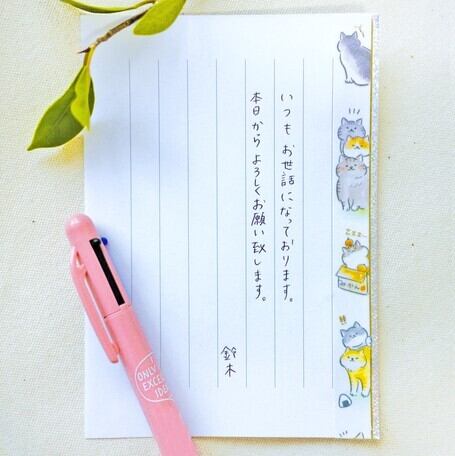 いつもお世話になっております。
本日からよろしくお願い致します。
鈴木
みかん
!!
ONLY
EXCE
IDE